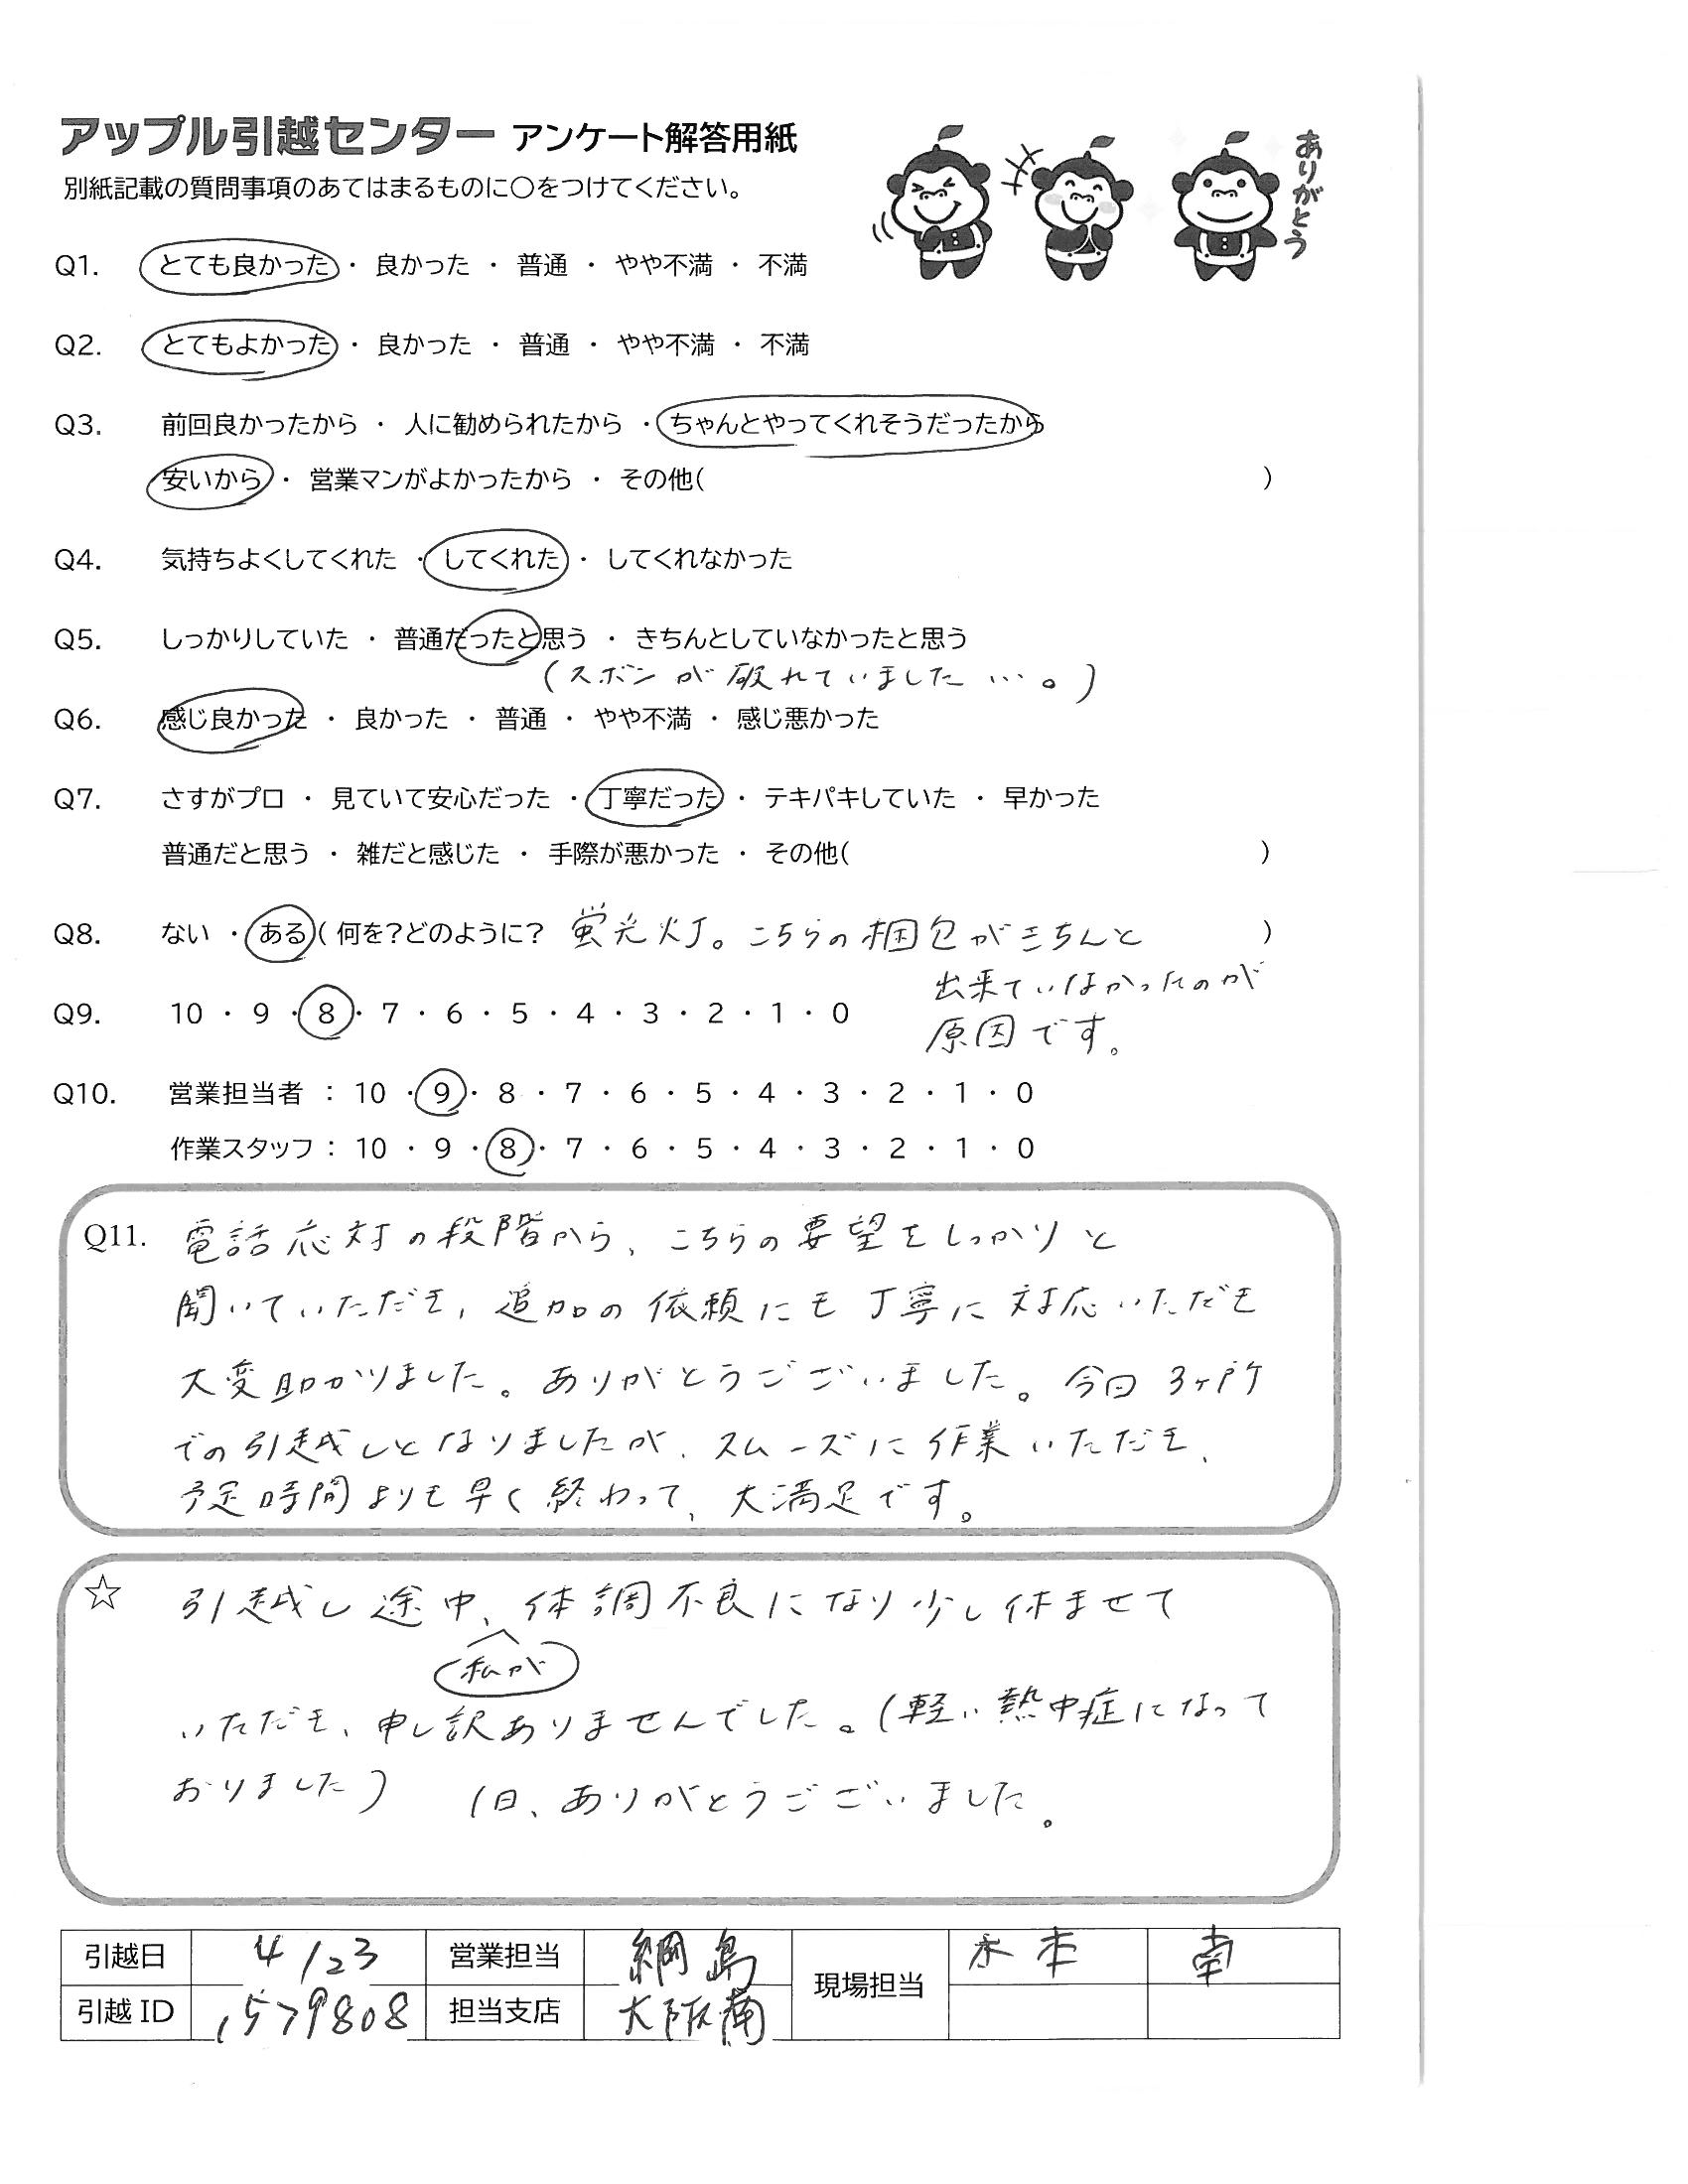 アップル引越センター アンケート解答用紙
ありがとう
別紙記載の質問事項のあてはまるものに〇をつけてください。
Q1. とても良かった ・ 良かった ・ 普通 ・ やや不満 ・ 不満
Q2. とてもよかった ・ 良かった ・ 普通 ・ やや不満 ・ 不満
Q3. 前回良かったから ・ 人に勧められたから ・ ちゃんとやってくれそうだったから
安いから ・ 営業マンがよかったから ・ その他( )
Q4. 気持ちよくしてくれた ・ してくれた ・ してくれなかった
Q5. しっかりしていた ・ 普通だったと思う ・ きちんとしていなかったと思う
(ズボンが破れていました…。)
Q6. 感じ良かった ・ 良かった ・ 普通 ・ やや不満 ・ 感じ悪かった
Q7. さすがプロ ・ 見ていて安心だった ・ 丁寧だった ・ テキパキしていた ・ 早かった
普通だと思う ・ 雑だと感じた ・ 手際が悪かった ・ その他( )
Q8. ない ・ ある ( 何を？どのように？ 蛍光灯。こちらの梱包がきちんと )
出来ていなかったのが
原因です。
Q9. 10 ・ 9 ・ 8 ・ 7 ・ 6 ・ 5 ・ 4 ・ 3 ・ 2 ・ 1 ・ 0
Q10. 営業担当者 : 10 ・ 9 ・ 8 ・ 7 ・ 6 ・ 5 ・ 4 ・ 3 ・ 2 ・ 1 ・ 0
作業スタッフ : 10 ・ 9 ・ 8 ・ 7 ・ 6 ・ 5 ・ 4 ・ 3 ・ 2 ・ 1 ・ 0
Q11. 電話応対の段階から、こちらの要望をしっかりと
聞いていただき、追加の依頼にも丁寧に対応いただき
大変助かりました。ありがとうございました。今回3ヶ所
での引越しとなりましたが、スムーズに作業いただき、
予定時間よりも早く終わって、大満足です。
☆ 引越し途中、体調不良になり少し休ませて
私が
いただき、申し訳ありませんでした。(軽い熱中症になって
おりました) 1日、ありがとうございました。
引越日 4/23 営業担当 綱島 現場担当 永本 南
引越ID 1579808 担当支店 大阪南